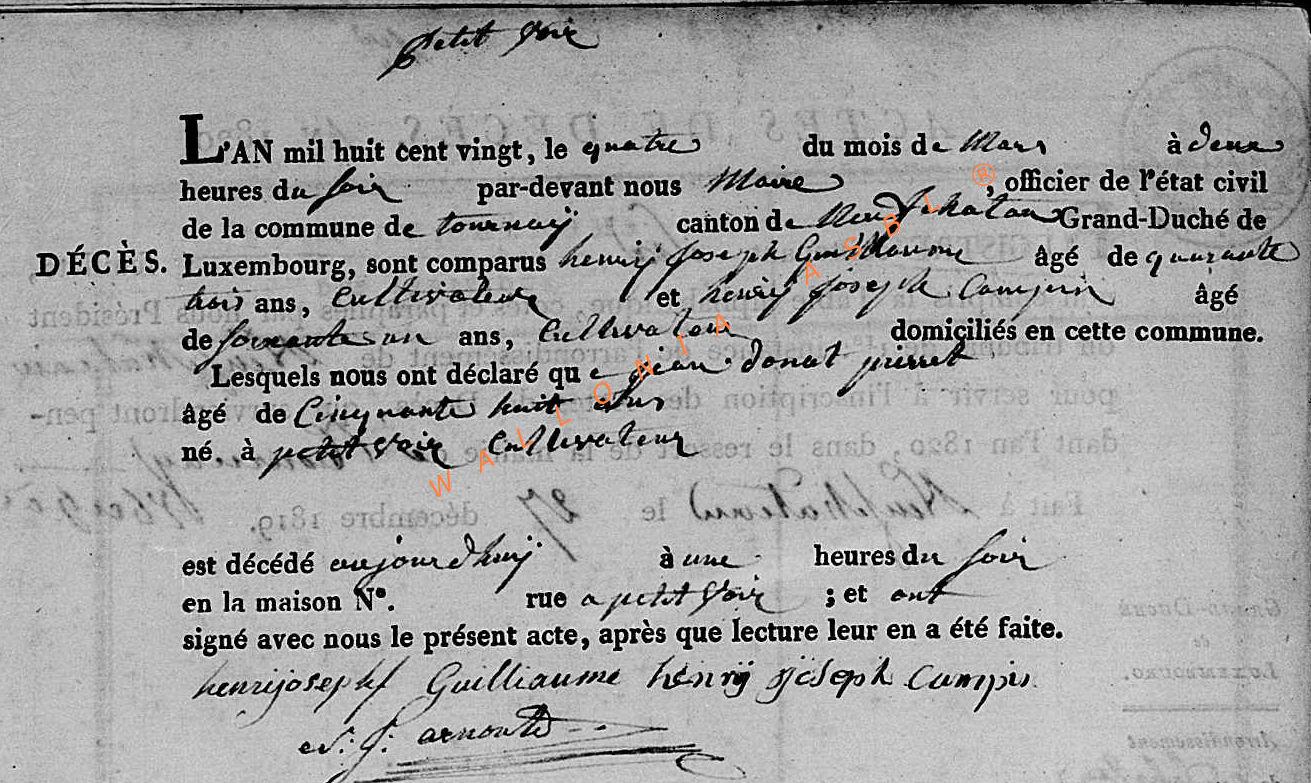 petit voir
L'AN mil huit cent vingt, le quatre du mois de Mars à deux
heures du soir par-devant nous Maire , officier de l'état civil
de la commune de tournaÿ canton de Neufchateau Grand-Duché de
DÉCÈS. Luxembourg, sont comparus henrÿ joseph Guillaume âgé de quarante
trois ans, Cultivateur et henrÿ joseph Campin âgé
de soixante un ans, Cultivateur domiciliés en cette commune.
Lesquels nous ont déclaré que jean donat pierret
âgé de Cinquante huit ans
né à petit voir Cultivateur
WALLONIA ASBL ®
est décédé aujourd'huÿ à une heures du soir
en la maison N°. rue a petit voir ; et ont
signé avec nous le présent acte, après que lecture leur en a été faite.
henrijoseph Guilliaume henrÿ joseph campin
arnould